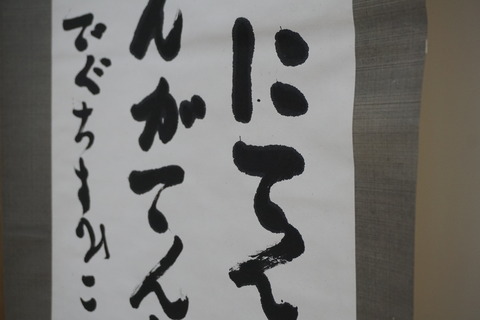 にてん
んがてん
でぐちすみこ